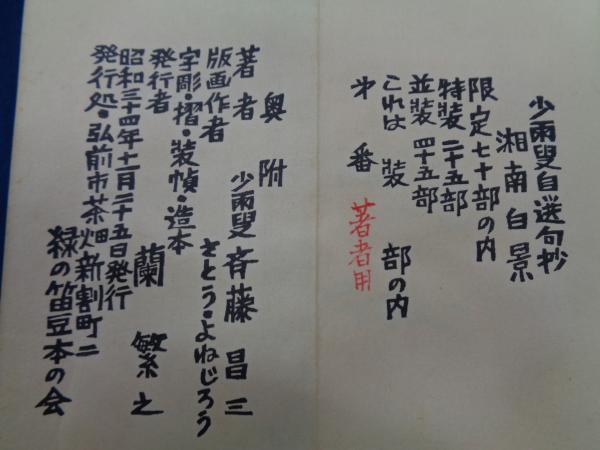 少雨叟自選句抄
湘南白景
限定七十部の内
特装 二十五部
並装 四十五部
これは 装 部の内
才 番 著者用
奥附
著者 少雨叟 斉藤昌三
版画作者 さとう・よねじろう
字彫・摺・装幀・造本
発行者 蘭 繁之
昭和三十四年十二月二十五日発行
発行処・弘前市茶畑新割町二
緑の笛豆本の会